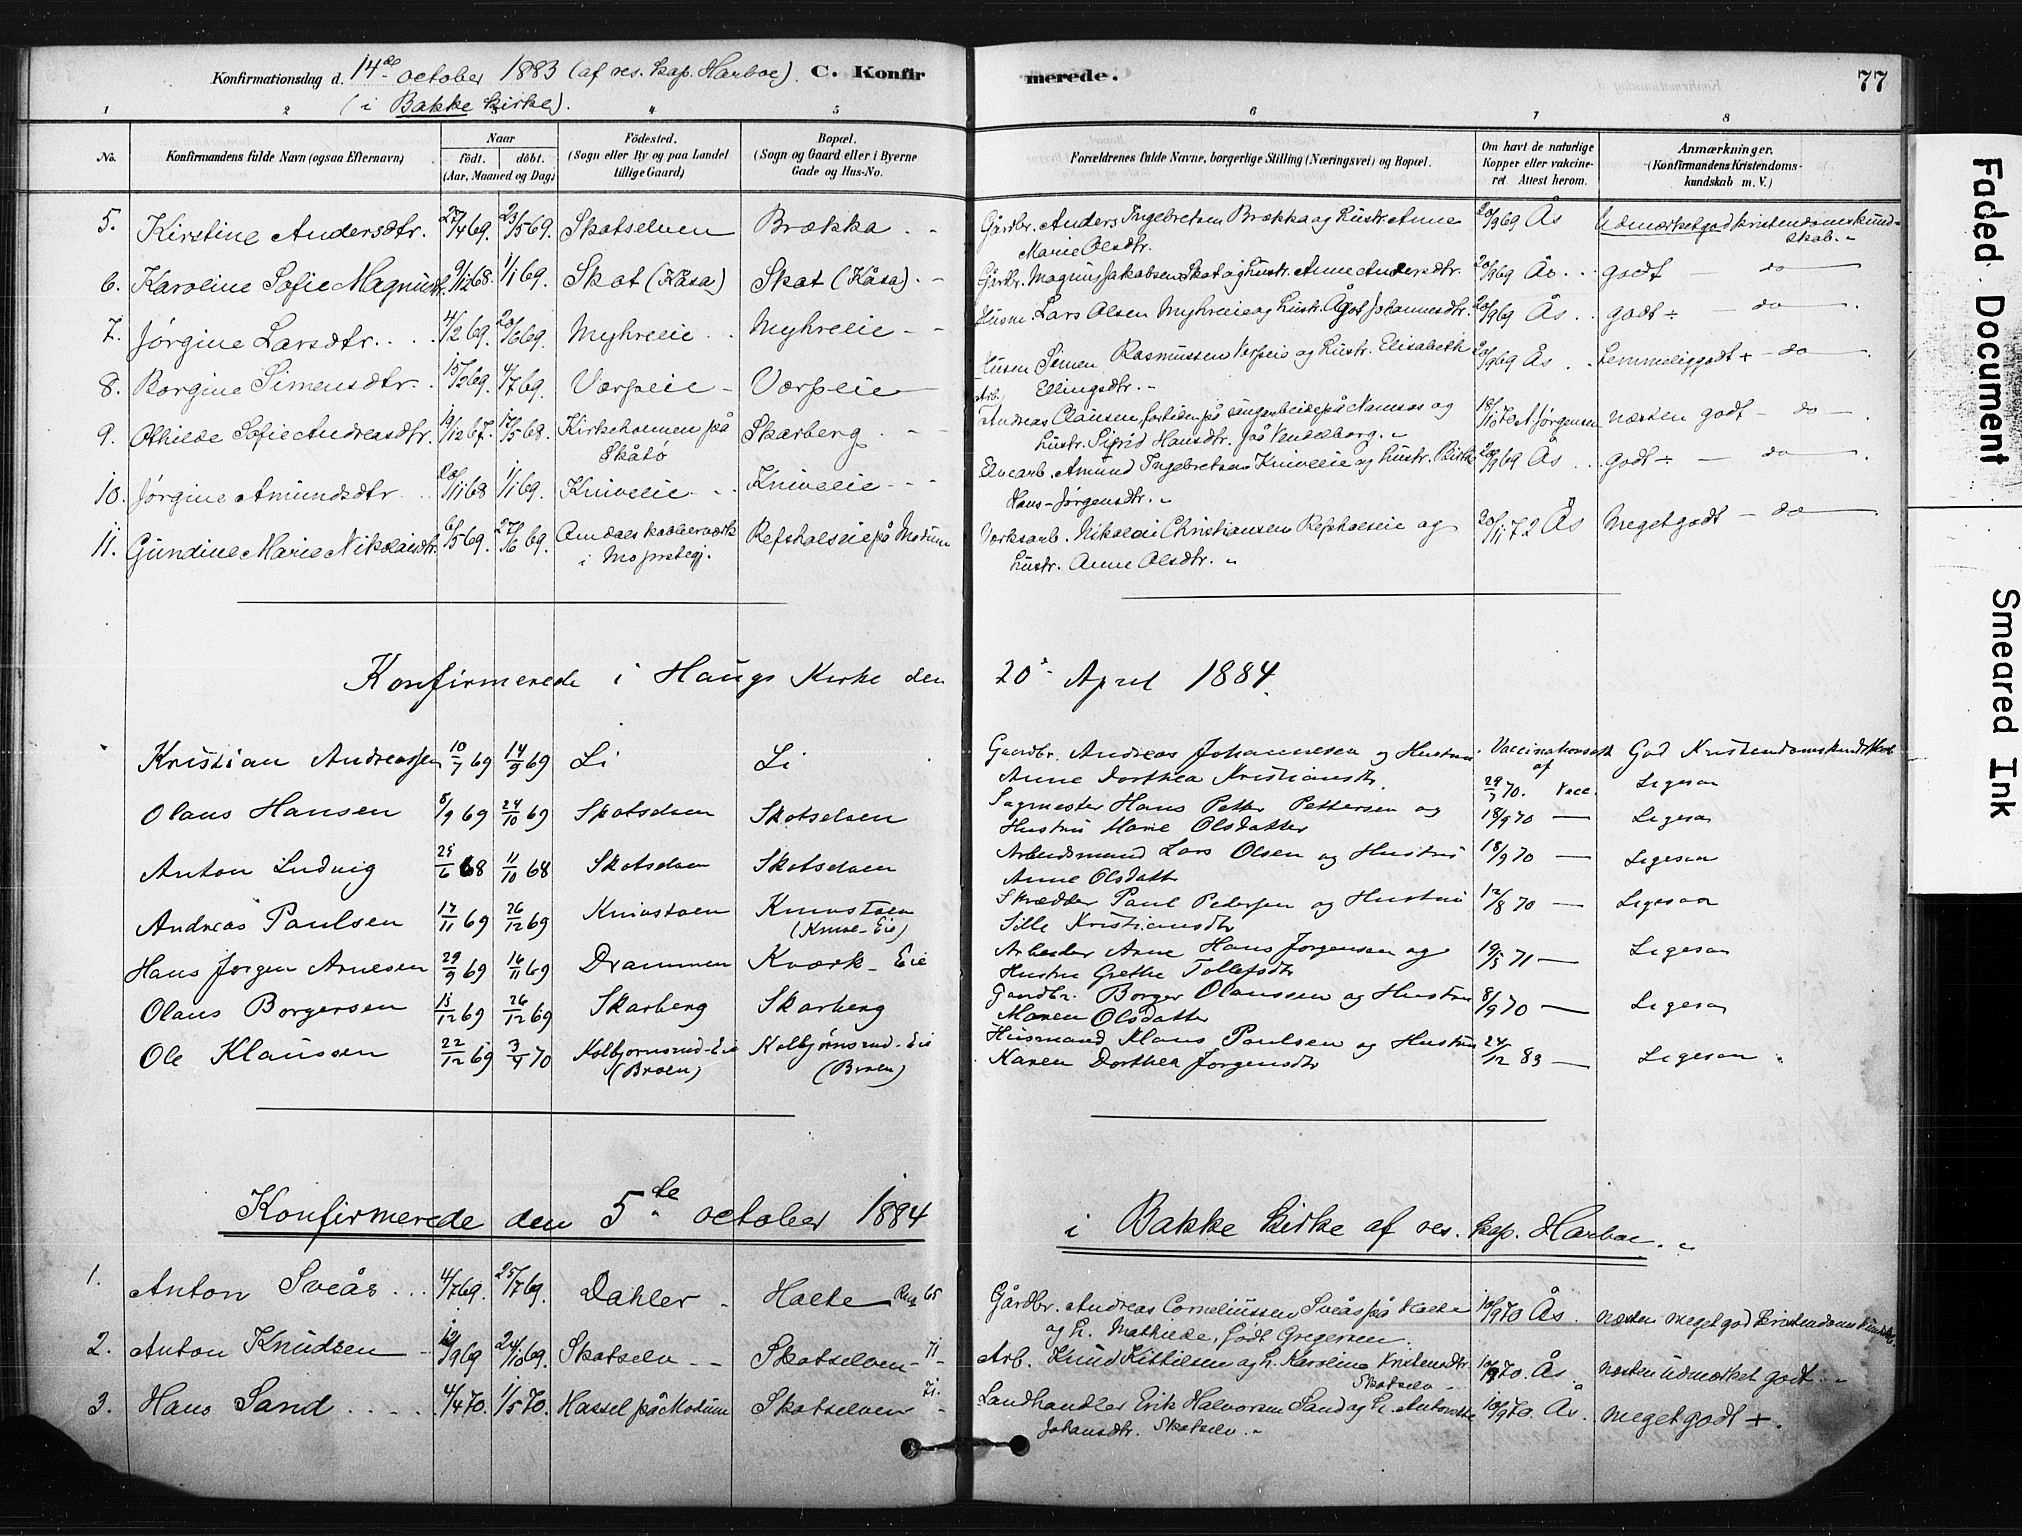 Konfirmationsdag d. 14de october 1883 (af res. kap. Harboe). C. Konfirmerede. 77
(i Bakke kirke).
1 2 3 4 5 6 7 8
No. Konfirmandens fulde Navn (ogsaa Efternavn) Naar født. døbt. (Aar, Maaned og Dag) Fødested. (Sogn eller By og paa Landet tillige Gaard) Bopæl. (Sogn og Gaard eller i Byerne Gade og Hus-No. Forældrenes fulde Navne, borgerlige Stilling (Næringsvei) og Bopæl. Om havt de naturlige Kopper eller vakcineret. Attest herom. Anmærkninger. (Konfirmandens Kristendomskundskab m. V.)
5. Kirstine Andersdtr. 27/4 69. 23/5 69. Skotselven Brækka Gårdbr. Anders Ingebretsen Brækka og hustr. Anne 20/9 69 Ås Udmærket god kristendomskund-
Marie Olsdtr. skab. "
6. Karoline Sofie Magnusdtr. 9/12 68. 1/1 69. Skot (Kåsa) Skot (Kåsa) Gårdbr. Magnus Jakobsen Skot og hustr. Anne Andersdtr. 20/9 69 Ås godt do
7. Jørgine Larsdtr. 4/2 69. 20/6 69. Myhreeie Myhreeie Husm. Lars Olsen Myhreeie og hustr. Ågot Johannesdtr. 20/9 69 Ås godt ÷ do
8. Borgine Simensdtr. 15/2 69. 4/7 69. Vorpeie Vorpeie Husm. Simen Rasmussen Vorpeie og hustr. Elisabeth 20/9 69 Ås temmelig godt + do
Ellingsdtr. "
9. Othilde Sofie Andreasdtr. 19/12 67. 17/5 68. Kirkeholmen på Skåtø Skarberg Arb. Andreas Clausen fortiden på sagarbeide på Namsos og 18/11 70 A. Jørgensen næsten godt do
hustr. Sigrid Hansdtr. på Vendelborg. "
10. Jørgine Amundsdtr 20/11 68 1/1 69. Kniveeie Kniveeie Elvearb. Amund Ingebretsen Kniveeie og hustr. Birthe 20/9 69 Ås godt ÷ do
Hans-Jørgensdtr. "
11. Gundine Marie Nikolaidtr. 6/5 69. 27/6 69. Omdals kobberværk i Mo prstegj. Refsholseie på Modum Værksarb. Nikolai Christiansen Refsholseie og 20/11 72 Ås Meget godt do
hustr. Anne Olsdtr. "
Konfirmerede i Haugs Kirke den 20de April 1884.
Kristian Andreassen 10/7 69 14/9 69 Li Li Gaardbr. Andreas Johannesen og Hustru Vaccinationsatt. af God Kristendomskundskab
Anne Dorthea Kristiansdtr. 29/7 70. Vacc. Ligesaa
Olaus Hansen 8/9 69 24/10 69 Skotselven Skotselven Sagmester Hans Petter Pettersen og
Hustru Marie Olsdatter 18/9 70 Ligesaa
Anton Ludvig 25/6 68 11/10 68 Skotselven Skotselven Arbeidsmand Lars Olsen og Hustru 18/9 70 Ligesaa
Anne Olsdatter
Andreas Paulsen 17/11 69 26/12 69 Knivstøen Knivstøen (Knive-Eie) Skrædder Paul Pedersen og Hustru 12/8 70 Ligesaa
Sille Kristiansdtr
Hans Jørgen Arnesen 29/9 69 16/11 69 Drammen Kværk-Eie Arbeider Arne Hans Jørgensen og 19/5 71 Ligesaa
Hustru Grethe Tollefsdtr
Olaus Borgersen 15/12 69 26/12 69 Skarberg Skarberg Gaardbr. Borger Olaussen og Hustru 8/9 70 Ligesaa
Maren Olsdatter
Ole Klaussen 22/12 69 3/4 70 Kolbjørnsrud-Eie (Broen) Kolbjørnsrud-Eie (Broen) Husmand Klaus Paulsen og Hustru 24/12 83 Ligesaa
Karen Dorthea Jørgensdtr
Konfirmerede den 5te october 1884 i Bakke kirke af res. kap. Harboe. "
1. Anton Sveås 4/7 69. 25/7 69. Dahler Holte 65 Gårdbr. Andreas Corneliussen Sveås på Holte 10/9 70 Ås. næsten meget god kristendomskundsk.
og h. Mathilde, født Gregersen.
2. Anton Knudsen 12/9 69 24/10 69. Skotselv Skotselven 71 Arb. Knud Kittilsen og h. Karoline Kristensdtr. 10/9 70. Ås. næsten udmærket godt. "
Skotselv
3. Hans Sand 4/4 70. 1/5 70. Hassel på Modum Skotselven 71. Landhandler Erik Halvorsen Sand og h. Antonette 10/9 70. Ås. meget godt +.
Johansdtr. Skotselv. "
Faded Document
Smeared Ink